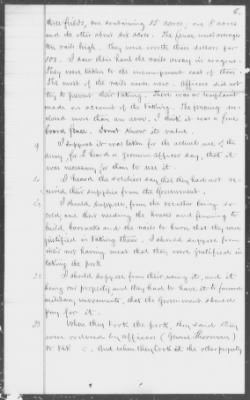 6.
three fields, one containing 15 acres, one 8 acres
and the other about six acres. The fence was
ten rails high. They were worth three dollars per
100. I saw them haul the rails away in wagons.
They were taken to the encampment east of there.
The most of the rails were new. Officers did not
try to prevent their taking. There was no complaint
made on account of the taking. The
closed more than an acre. I think it was a fine
board fence. I don't know its value.
9 I suppose it was taken for the actual use of the
army, for I heard a officer say, that it
was necessary for them to use it.
10 I heard the soldiers say that they had not re-
ceived their supplies from the Government.
I should suppose, from the weather being so
cold, and their needing the houses and fencing to
build barracks and the rails to burn, that they were
justified in taking them. I should suppose from
their not having meat that they were justified in
taking the pork.
22 I should suppose from their using it, and it
being our property and they had to have it to
military movements, that the Government should
pay for it.
23 When they took the pork, they said they
were ordered by officers (General Sherman)
to And when they took it the other property